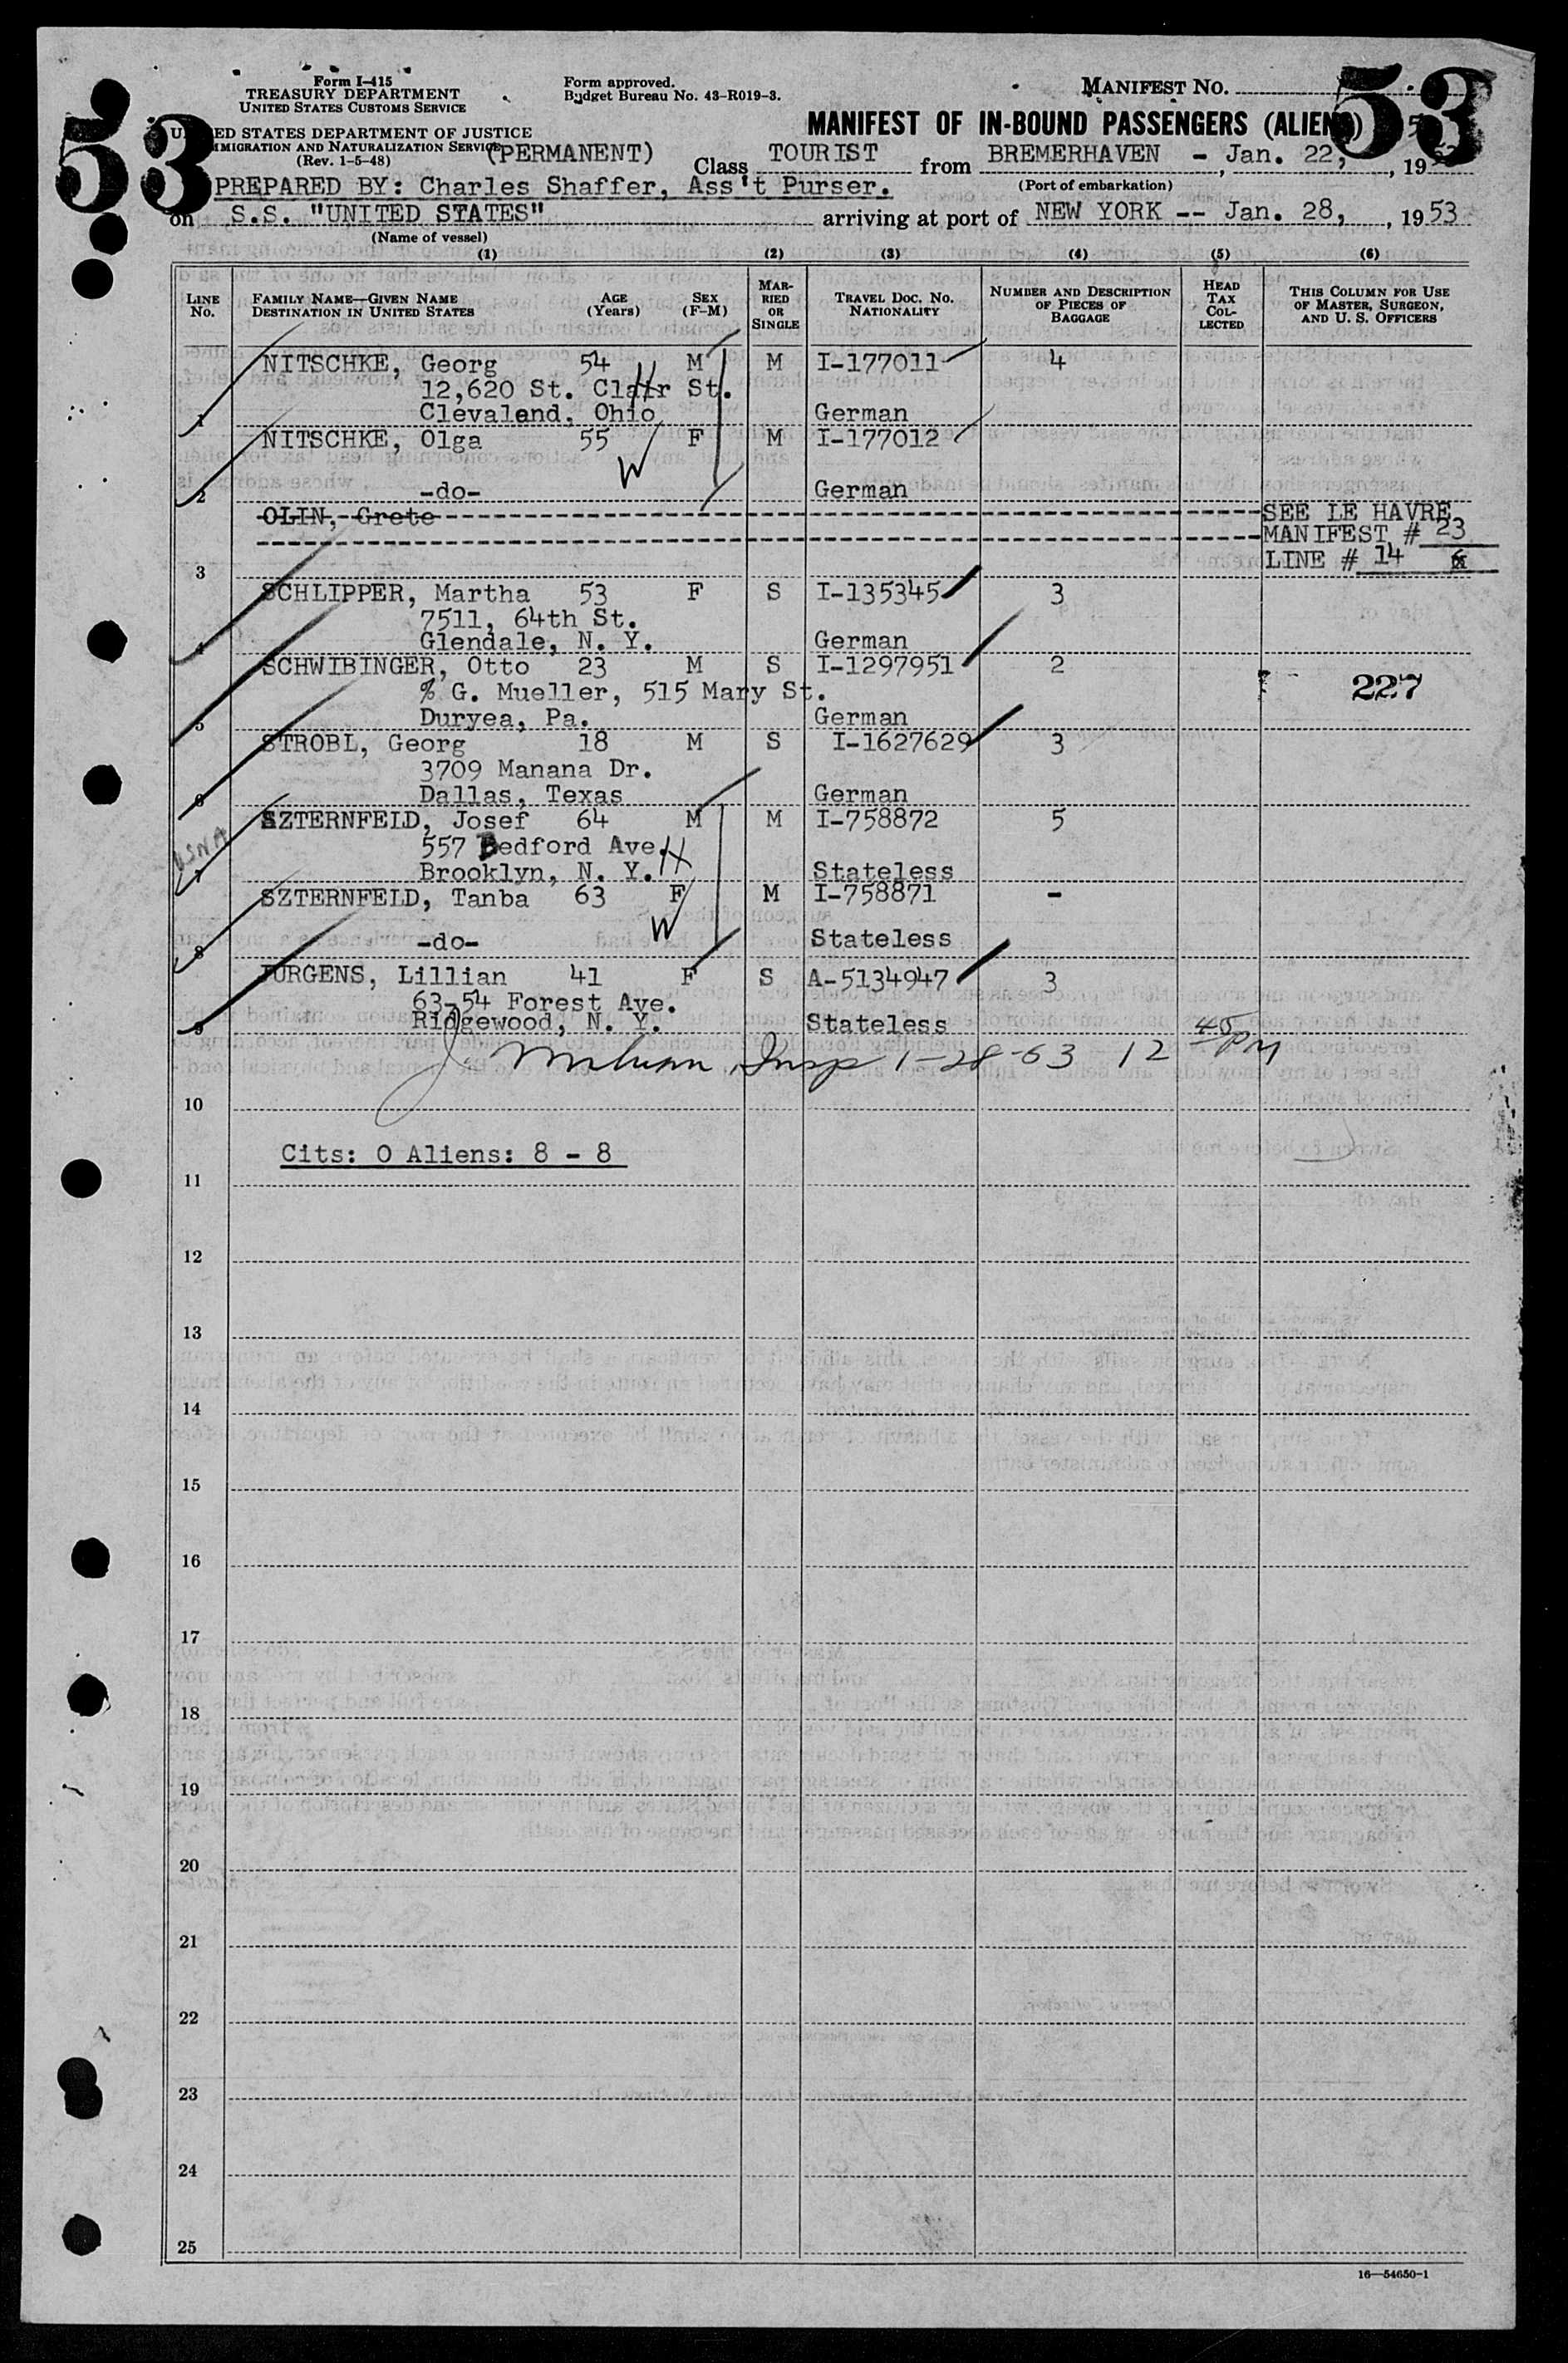 53
53
Form I-415
TREASURY DEPARTMENT
UNITED STATES CUSTOMS SERVICE
Form approved.
Budget Bureau No. 43-R019-3.
MANIFEST NO.
ED STATES DEPARTMENT OF JUSTICE
MMIGRATION AND NATURALIZATION SERVICE
(Rev. 1-5-48)
(PERMANENT)
MANIFEST OF IN-BOUND PASSENGERS (ALIENS)
Class TOURIST from BREMERHAVEN - Jan. 22, , 19
(Port of embarkation)
PREPARED BY: Charles Shaffer, Ass't Purser.
on S.S. "UNITED STATES" arriving at port of NEW YORK -- Jan. 28, , 1953
(Name of vessel)
(1) (2) (3) (4) (5) (6)
LINE No.
FAMILY NAME—GIVEN NAME DESTINATION IN UNITED STATES
AGE (Years)
SEX (F-M)
MARRIED OR SINGLE
TRAVEL DOC. NO. NATIONALITY
NUMBER AND DESCRIPTION OF PIECES OF BAGGAGE
HEAD TAX COLLECTED
THIS COLUMN FOR USE OF MASTER, SURGEON, AND U. S. OFFICERS
NITSCHKE, Georg 54 M M I-177011 4
12,620 St. Clair St. H
1 Clevaland, Ohio German
NITSCHKE, Olga 55 F M I-177012
W
2 -do- German
OLIN, Grete SEE LE HAVRE
MANIFEST # 23
3 LINE # 14
SCHLIPPER, Martha 53 F S I-135345 3
7511, 64th St.
4 Glendale, N. Y. German
SCHWIBINGER, Otto 23 M S I-1297951 2
% G. Mueller, 515 Mary St. 227
5 Duryea, Pa. German
STROBL, Georg 18 M S I-1627629 3
3709 Manana Dr.
6 Dallas, Texas German
SZTERNFELD, Josef 64 M M I-758872 5
557 Bedford Ave. H
7 Brooklyn, N. Y. Stateless
SZTERNFELD, Tanba 63 F M I-758871 -
W
8 -do- Stateless
JURGENS, Lillian 41 F S A-5134947 3
63-54 Forest Ave.
9 Ridgewood, N. Y. Stateless
Insp 1-28-53 12 45 PM
10
Cits: 0 Aliens: 8 - 8
11
12
13
14
15
16
17
18
19
20
21
22
23
24
25
16—54650-1